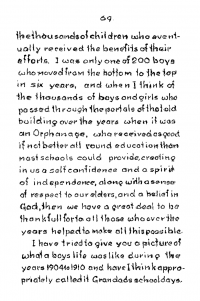 69.
the thousands of children who event-
ually received the benefits of their
efforts. I was only one of 200 boys
who moved from the bottom to the top
in six years, and when I think of
the thousands of boys and girls who
passed through the portals of that old
building over the years when it was
an Orphanage, who received as good
if not better all round education than
most schools could provide, creating
in us a self confidence and a spirit
of independence, along with a sense
of respect to our elders, and a belief in
God, then we have a great deal to be
thankfull for to all those who over the
years helped to make all this possible.
I have tried to give you a picture of
what a boys life was like during the
years 1904 to 1910 and have I think appro-
priately called it Grandads school days.